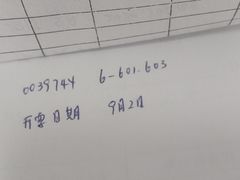 0039744 6-601.603
开票日期 9月2日